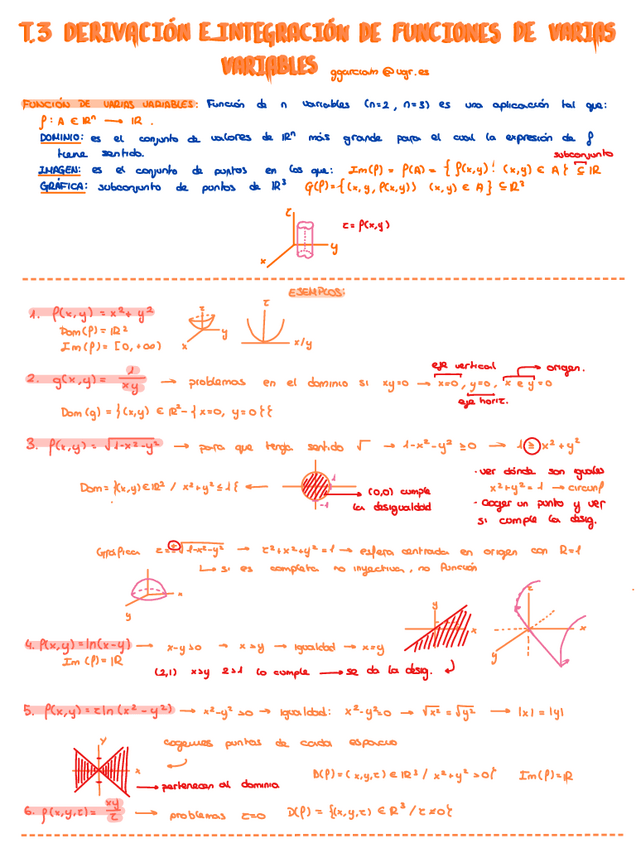 T.3 DERIVACIÓN E INTEGRACIÓN DE FUNCIONES DE VARIAS
VARIABLES ggarciam@ugr.es
FUNCIÓN DE VARIAS VARIABLES: Función de n variables (n=2, n=3) es una aplicación tal que:
f: A ∈ ℝⁿ → ℝ.
DOMINIO: es el conjunto de valores de ℝⁿ más grande para el cual la expresión de f
tiene sentido.
subconjunto
IMAGEN: es el conjunto de puntos en los que: Im(f) = f(A) = { f(x,y): (x,y) ∈ A} ⊆ ℝ
GRÁFICA: subconjunto de puntos de ℝ³ G(f)={(x, y, f(x,y)) (x,y) ∈ A} ⊆ ℝ³
z
z = f(x,y)
y
x
EJEMPLOS:
1. f(x,y) = x² + y²
Dom(f) = ℝ²
Im(f) = [0, +∞)
z
y
x
z
x/y
eje vertical
origen.
2. g(x,y) = 1/xy → problemas en el dominio si xy=0 → x=0, y=0, x e y=0
eje horiz.
Dom(g) = {(x,y) ∈ ℝ² - { x=0, y=0}}
3. f(x,y) = √1-x²-y² → para que tenga sentido √ → 1-x²-y² ≥ 0 → 1 ≥ x² + y²
Dom = {(x,y) ∈ ℝ² / x²+y² ≤ 1} ←
1
-1
→ (0,0) cumple
la desigualdad
· ver dónde son iguales
x²+y² = 1 → circunf
· Coger un punto y ver
si cumple la desig.
Gráfica z = ±√1-x²-y² → z²+x²+y² = 1 → esfera centrada en origen con R=1
↳ si es completa no inyectiva, no función
x
y
4. f(x,y) = ln(x-y) → x-y>0 → x>y → igualdad → x=y
Im(f) = ℝ
(2,1) x>y 2>1 lo cumple → se da la desig.
y
x
z
x
y
5. f(x,y) = z ln(x² - y²) → x²-y² >0 → igualdad: x²-y²=0 → √x² = √y² → |x| = |y|
y
x
cogemos puntos de cada espacio
→ pertenecen al dominio
D(f) = (x,y,z) ∈ ℝ³ / x²+y² >0} Im(f) = ℝ
6. f(x,y,z) = xy/z → problemas z=0 D(f) = {(x,y,z) ∈ ℝ³ / z≠0}